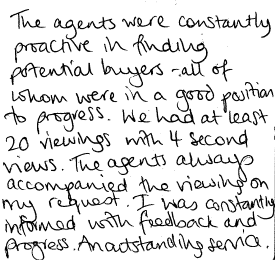 The agents were constantly
proactive in finding
potential buyers - all of
whom were in a good position
to progress. We had at least
20 viewings with 4 second
views. The agents always
accompanied the viewings on
my request. I was constantly
informed with feedback and
progress. An outstanding service.